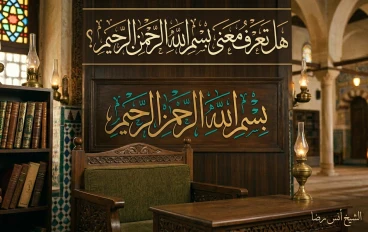 هَل تَعْرِفُ مَعْنَى بِسْمِ اللَّهِ الرَّحْمَٰنِ الرَّحِيمِ؟
بِسْمِ اللَّهِ الرَّحْمَٰنِ الرَّحِيمِ
الشيخ أنس رضا